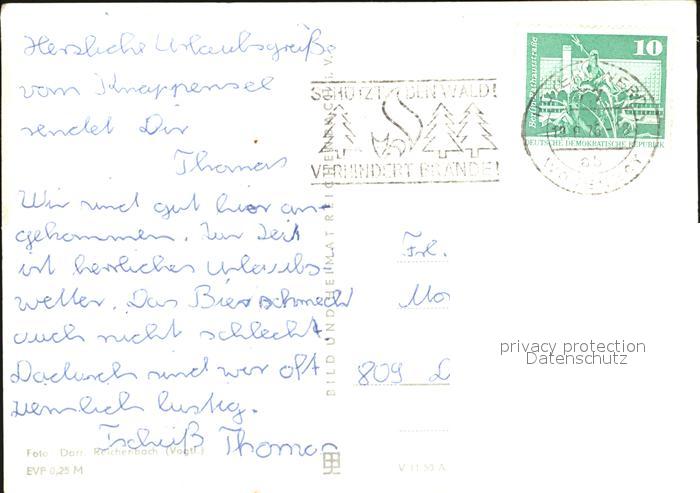 Herzliche Urlaubsgrüße
vom Knappensee
sendet Dir
Thomas
Wir sind gut hier an-
gekommen. Zur Zeit
ist herrliches Urlaubs-
wetter. Das Bier schmeckt
auch nicht schlecht.
Dadurch sind wir oft
ziemlich lustig.
Tschüß Thomas
Foto: Darr, Reichenbach (Vogtl.)
EVP 0,25 M
BILD UND HEIMAT REICHENBACH I. V.
V 11 50 A
SCHÜTZT DEN WALD!
VERHINDERT BRÄNDE!
10
Berlin, Rathausstraße
DEUTSCHE DEMOKRATISCHE REPUBLIK
Frl.
809
privacy protection
Datenschutz